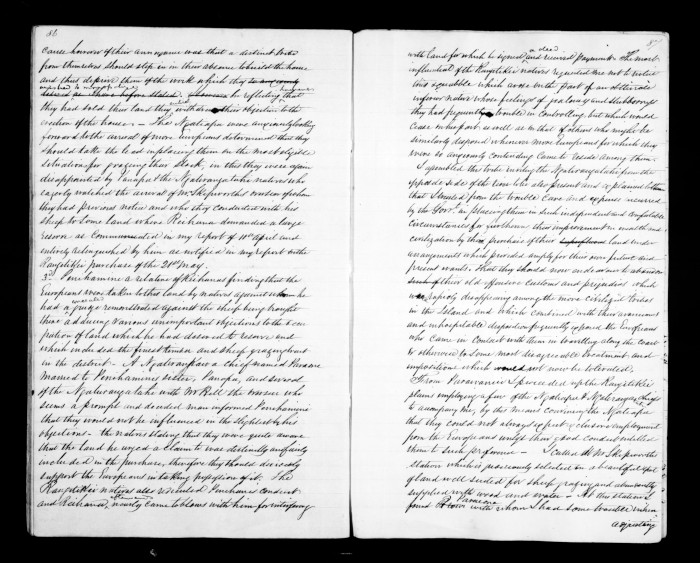 86
cause however of their annoyance was that a distinct tribe
from themselves should step in in their absence to build the house
and thus deprive them of the work which they
by reflecting that
they had sold their land they withdrew their objection to the
erection of the house - The Ngatiapa were anxiously looking
forward to the arrival of more Europeans determined that they
should take the lead in placing them on the most eligible
situations for grazing their stock, in this they were again
disappointed by Panapa & the Ngatiraukawa natives who
eagerly watched the arrival of Mr Skipworth's overseer of whom
they had previous notice and who they conducted with his
sheep to some land where Reihana demanded a large
reserve as communicated in my report of 10th April and
entirely relinquished by him as notified in my report on the
Rangitikei purchase of the 21st May.
3rd Penehamine a relative of Reihana's finding that the
Europeans were taken to this land by natives against whom he
had a grudge remonstrated against the sheep being brought
there adducing various unimportant objections to the occu
pation of land which he had desired to reserve and
which included the finest timber and sheep grazing land
in the district - A Ngatiraukawa chief named
married to Penehamine's sister, Panapa, and several
of the Ngatiraukawa with Mr Bell the overseer who
seems a prompt and decided man informed Penehamine
that they would not be influenced in the slightest by his
objections - the natives stating that they were quite aware
that the land he urged a claim to was distinctly and fairly
included in the purchase, therefore they should decidedly
support the Europeans in taking possession of it. The
Rangitikei natives also resented Penehamine's conduct
and Reihana nearly came to blows with him for interfering
87
with land for which he signed a deed and received payment - The most
influential of the Rangitikei natives requested me not to notice
this squabble which arose on the part of an illiterate
inferior native whose feelings of jealousy and stubbornness
they had frequently trouble in controlling but which would
cease in his part as well as in that of others who might be
similarly disposed whenever more Europeans for which they
were so anxiously contending came to reside among them.
I assembled the tribe inviting the Ngatiraukawa from the
opposite side of the river to be also present and explained to them
that it resulted from the trouble care and expense incurred
by the Govt. in placing them in such independent and comfortable
circumstances for furthering their improvement in wealth and
civilization by the purchase of their land under
arrangements which provided amply for their own future and
present wants. That they should now endeavour to abandon
such of their old offensive customs and prejudices which
were rapidly disappearing among the more civilized tribes
in the Island and which combined with their avaricious
and inhospitable disposition frequently exposed the Europeans
who came in contact with them in travelling along the coast
& otherwise to some most disagreeable treatment and
impositions which would not now be tolerated.
From Parawanui I proceeded up the Rangitikei
plains employing a few of the Ngatiapa & Ngatiraukawa chiefs
to accompany me, by this means convincing the Ngatiapa
that they could not always expect exclusive employment
from the Europeans unless their good conduct entitled
them to such preference - I called at Mr Skipworth's
station which is judiciously selected in a beautiful spot
of land well suited for sheep grazing and abundantly
supplied with wood and water - At the station I
found with whom I had some trouble when
adjusting